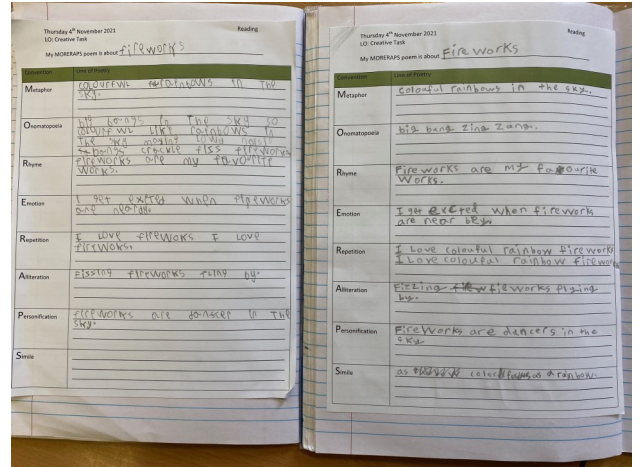 Thursday 4th November 2021 Reading
LO: Creative Task
My MORERAPS poem is about fireworks
Convention Line of Poetry
Metaphor colourful rainbows in the
sky.
Onomatopoeia big bangs in the sky so
like rainbows in
the sky
bangs crackle fiss fireworks
Rhyme fireworks are my favourite
works.
Emotion I get exited when fireworks
are
Repetition I love firewoks I love
firewoks.
Alliteration Fissing fireworks fling by.
Personification fireworks are dancer in the
sky.
Simile
Thursday 4th November 2021 Reading
LO: Creative Task
My MORERAPS poem is about Fire works
Convention Line of Poetry
Metaphor colouful rainbows in the sky.
Onomatopoeia big bang zing zang.
Rhyme Fireworks are my favourite
works.
Emotion I get when firework
are near
Repetition I Love colouful rainbow firework
I Love colouful rainbow firework
Alliteration fieworks flying
by.
Personification Fire works are dancers in the
sky.
Simile as as a rainbow.